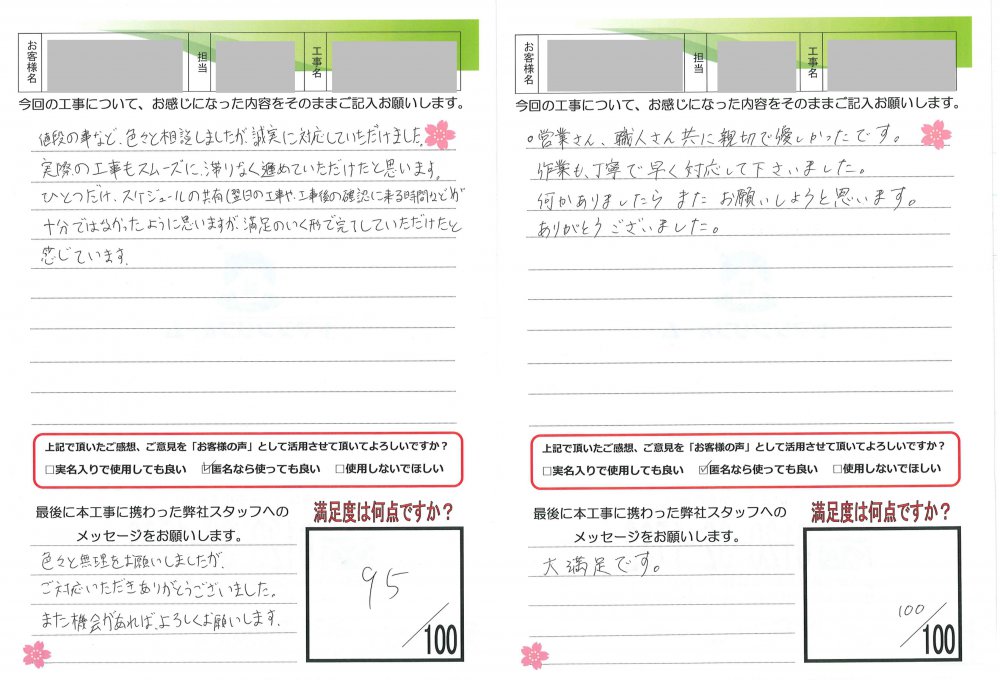 お客様名
担当
工事名
今回の工事について、お感じになった内容をそのままご記入お願いします。
値段の事など、色々と相談しましたが、誠実に対応していただけました。
実際の工事もスムーズに、滞りなく進めていただけたと思います。
ひとつだけ、スケジュールの共有(翌日の工事や、工事後の確認に来る時間など)が
十分ではなかったように思いますが、満足のいく形で完了していただけたと
感じています。
上記で頂いたご感想、ご意見を「お客様の声」として活用させて頂いてよろしいですか?
□実名入りで使用しても良い ☑匿名なら使っても良い □使用しないでほしい
最後に本工事に携わった弊社スタッフへの
メッセージをお願いします。
色々と無理をお願いしましたが、
ご対応いただきありがとうございました。
また機会があれば、よろしくお願いします。
満足度は何点ですか?
95/100
お客様名
担当
工事名
今回の工事について、お感じになった内容をそのままご記入お願いします。
○営業さん、職人さん共に親切で優しかったです。
作業も、丁寧で早く対応して下さいました。
何かありましたら また お願いしようと思います。
ありがとうございました。
上記で頂いたご感想、ご意見を「お客様の声」として活用させて頂いてよろしいですか?
□実名入りで使用しても良い ☑匿名なら使っても良い □使用しないでほしい
最後に本工事に携わった弊社スタッフへの
メッセージをお願いします。
大満足です。
満足度は何点ですか?
100/100